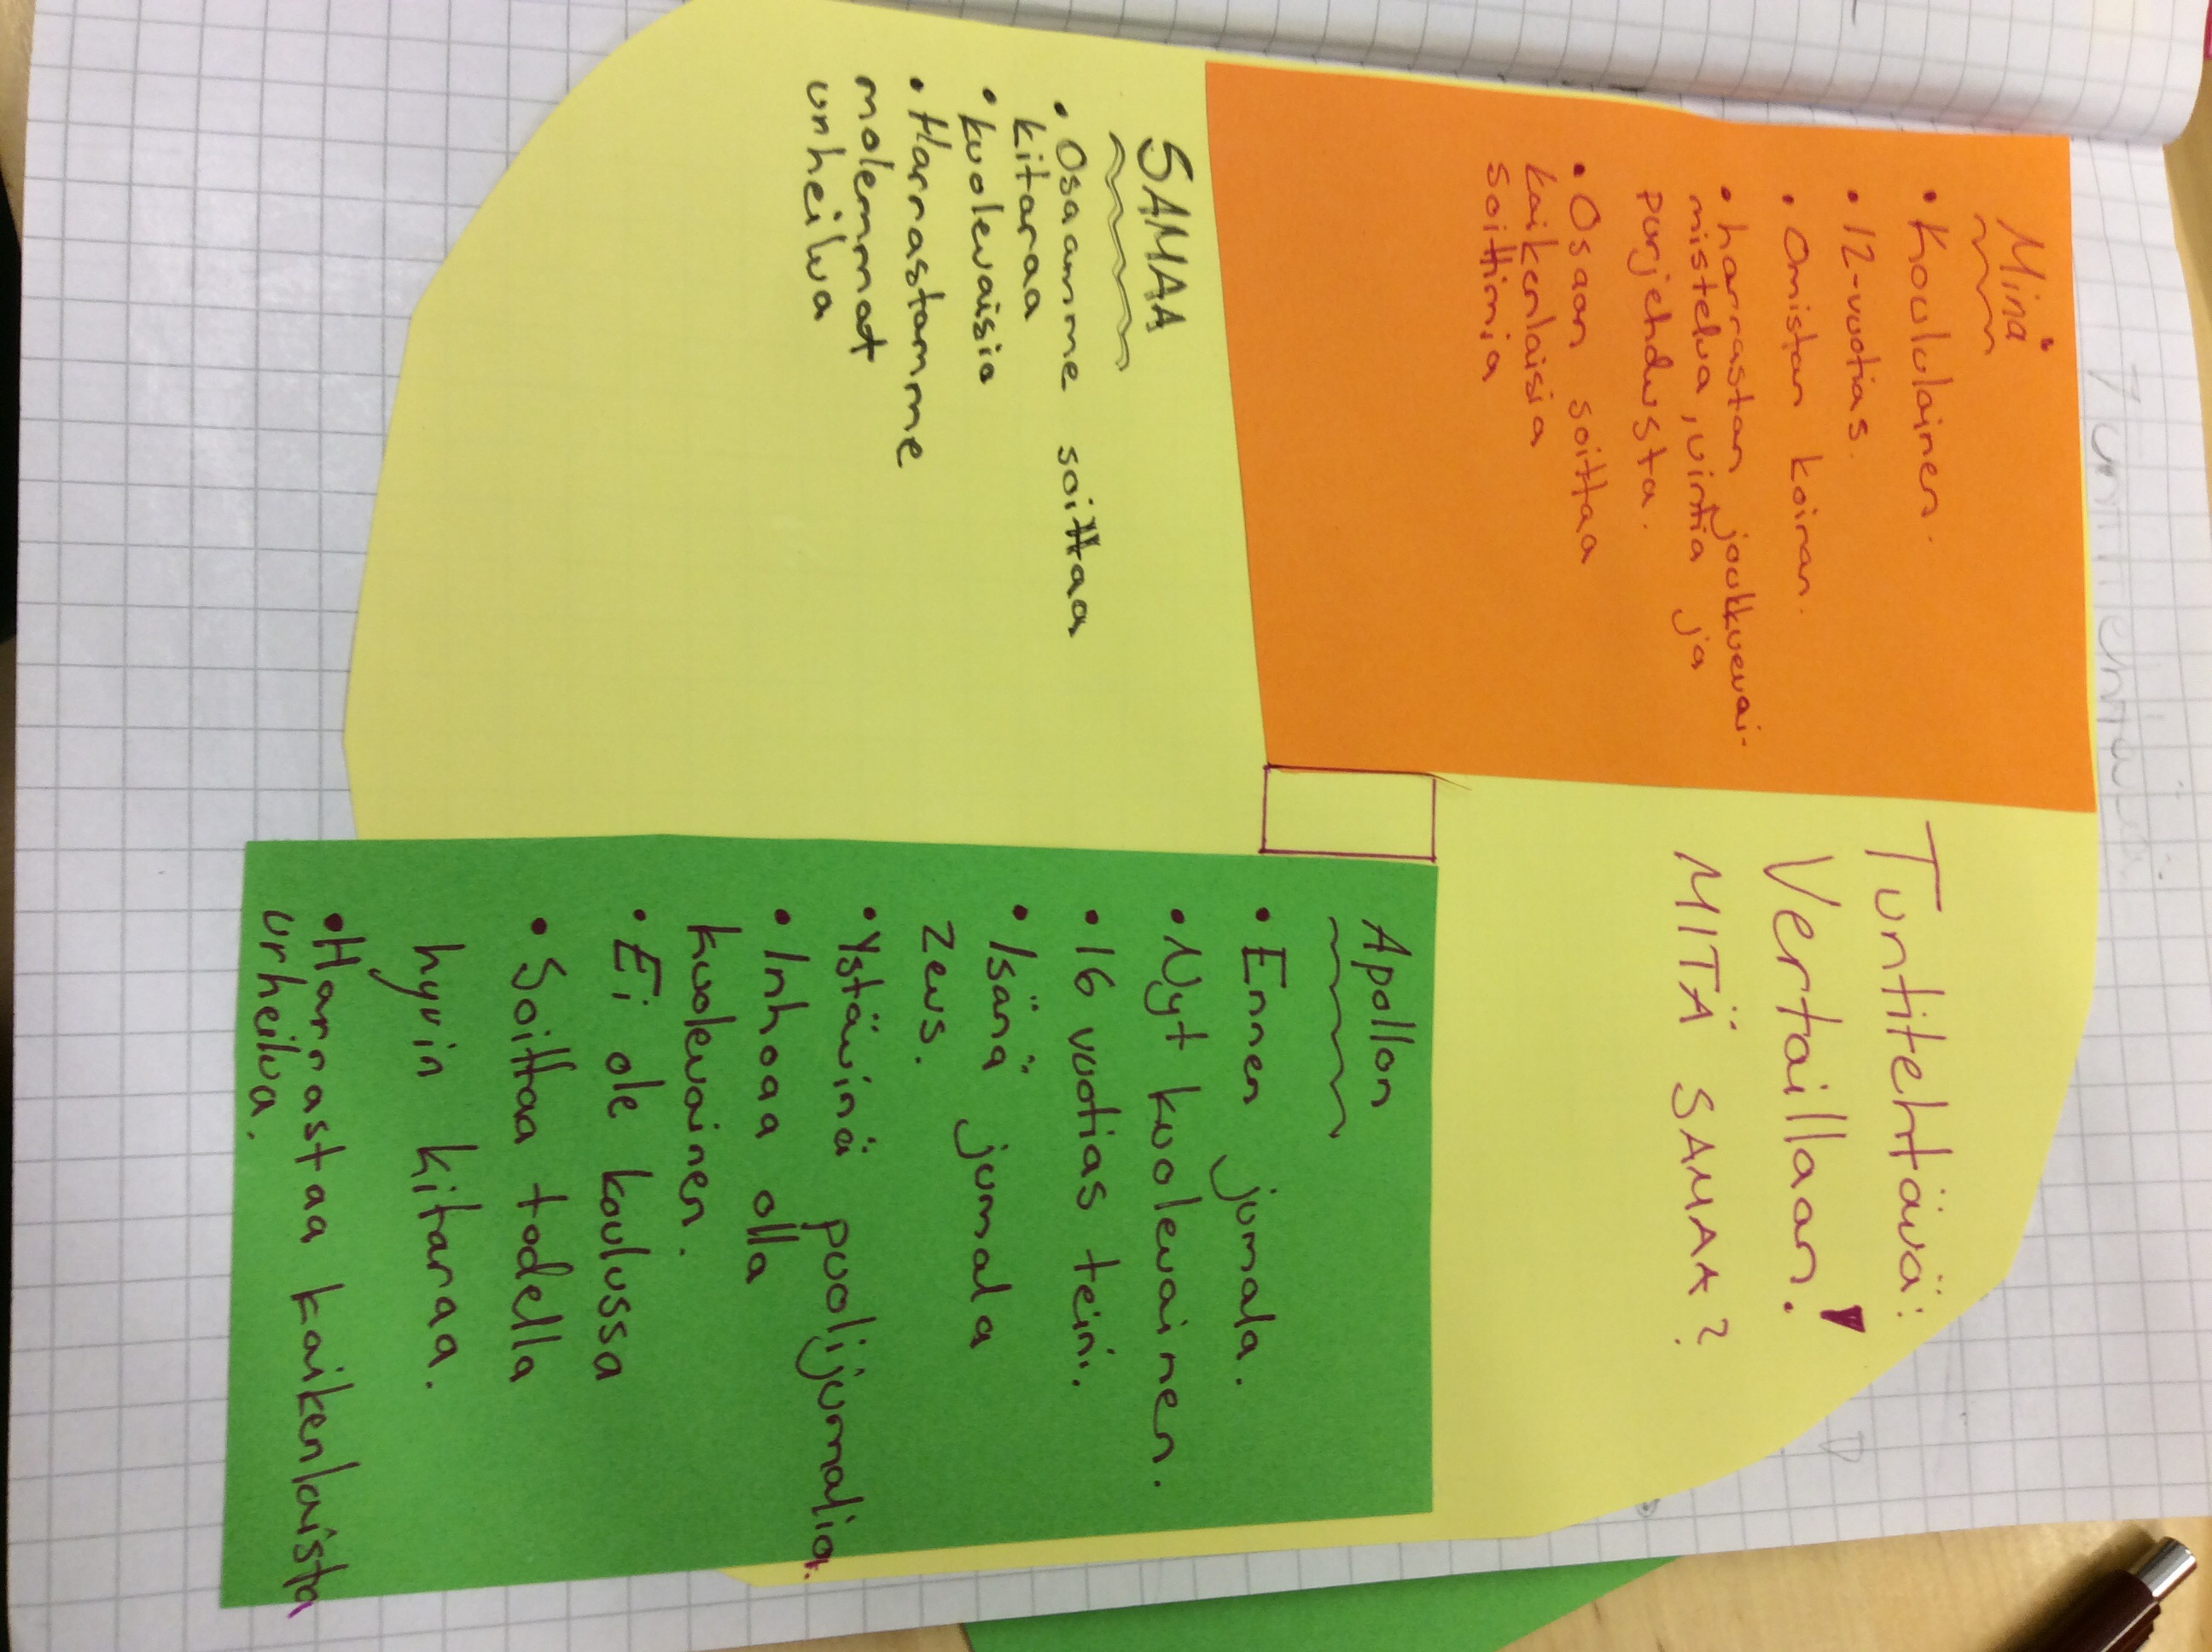 Minä
• Koululainen.
• 12-vuotias.
• Omistan koiran.
• harrastan joukkuevoi-
mistelua, uintia ja
purjehdusta.
• Osaan soittaa
kaikenlaisia
soittimia
Tuntitehtävä:
Vertaillaan!
MITÄ SAMAA?
SAMAA
• Osaamme soittaa
kitaraa
• kuolevaisia
• Harrastamme
molemmat
urheilua
Apollon
• Ennen jumala.
• Nyt kuolevainen.
• 16 vuotias teini.
• Isänä jumala
Zeus.
• Ystävinä puolijumalia.
• Inhoaa olla
kuolevainen.
• Ei ole koulussa
• Soittaa todella
hyvin kitaraa.
• Harrastaa kaikenlaista
urheilua.